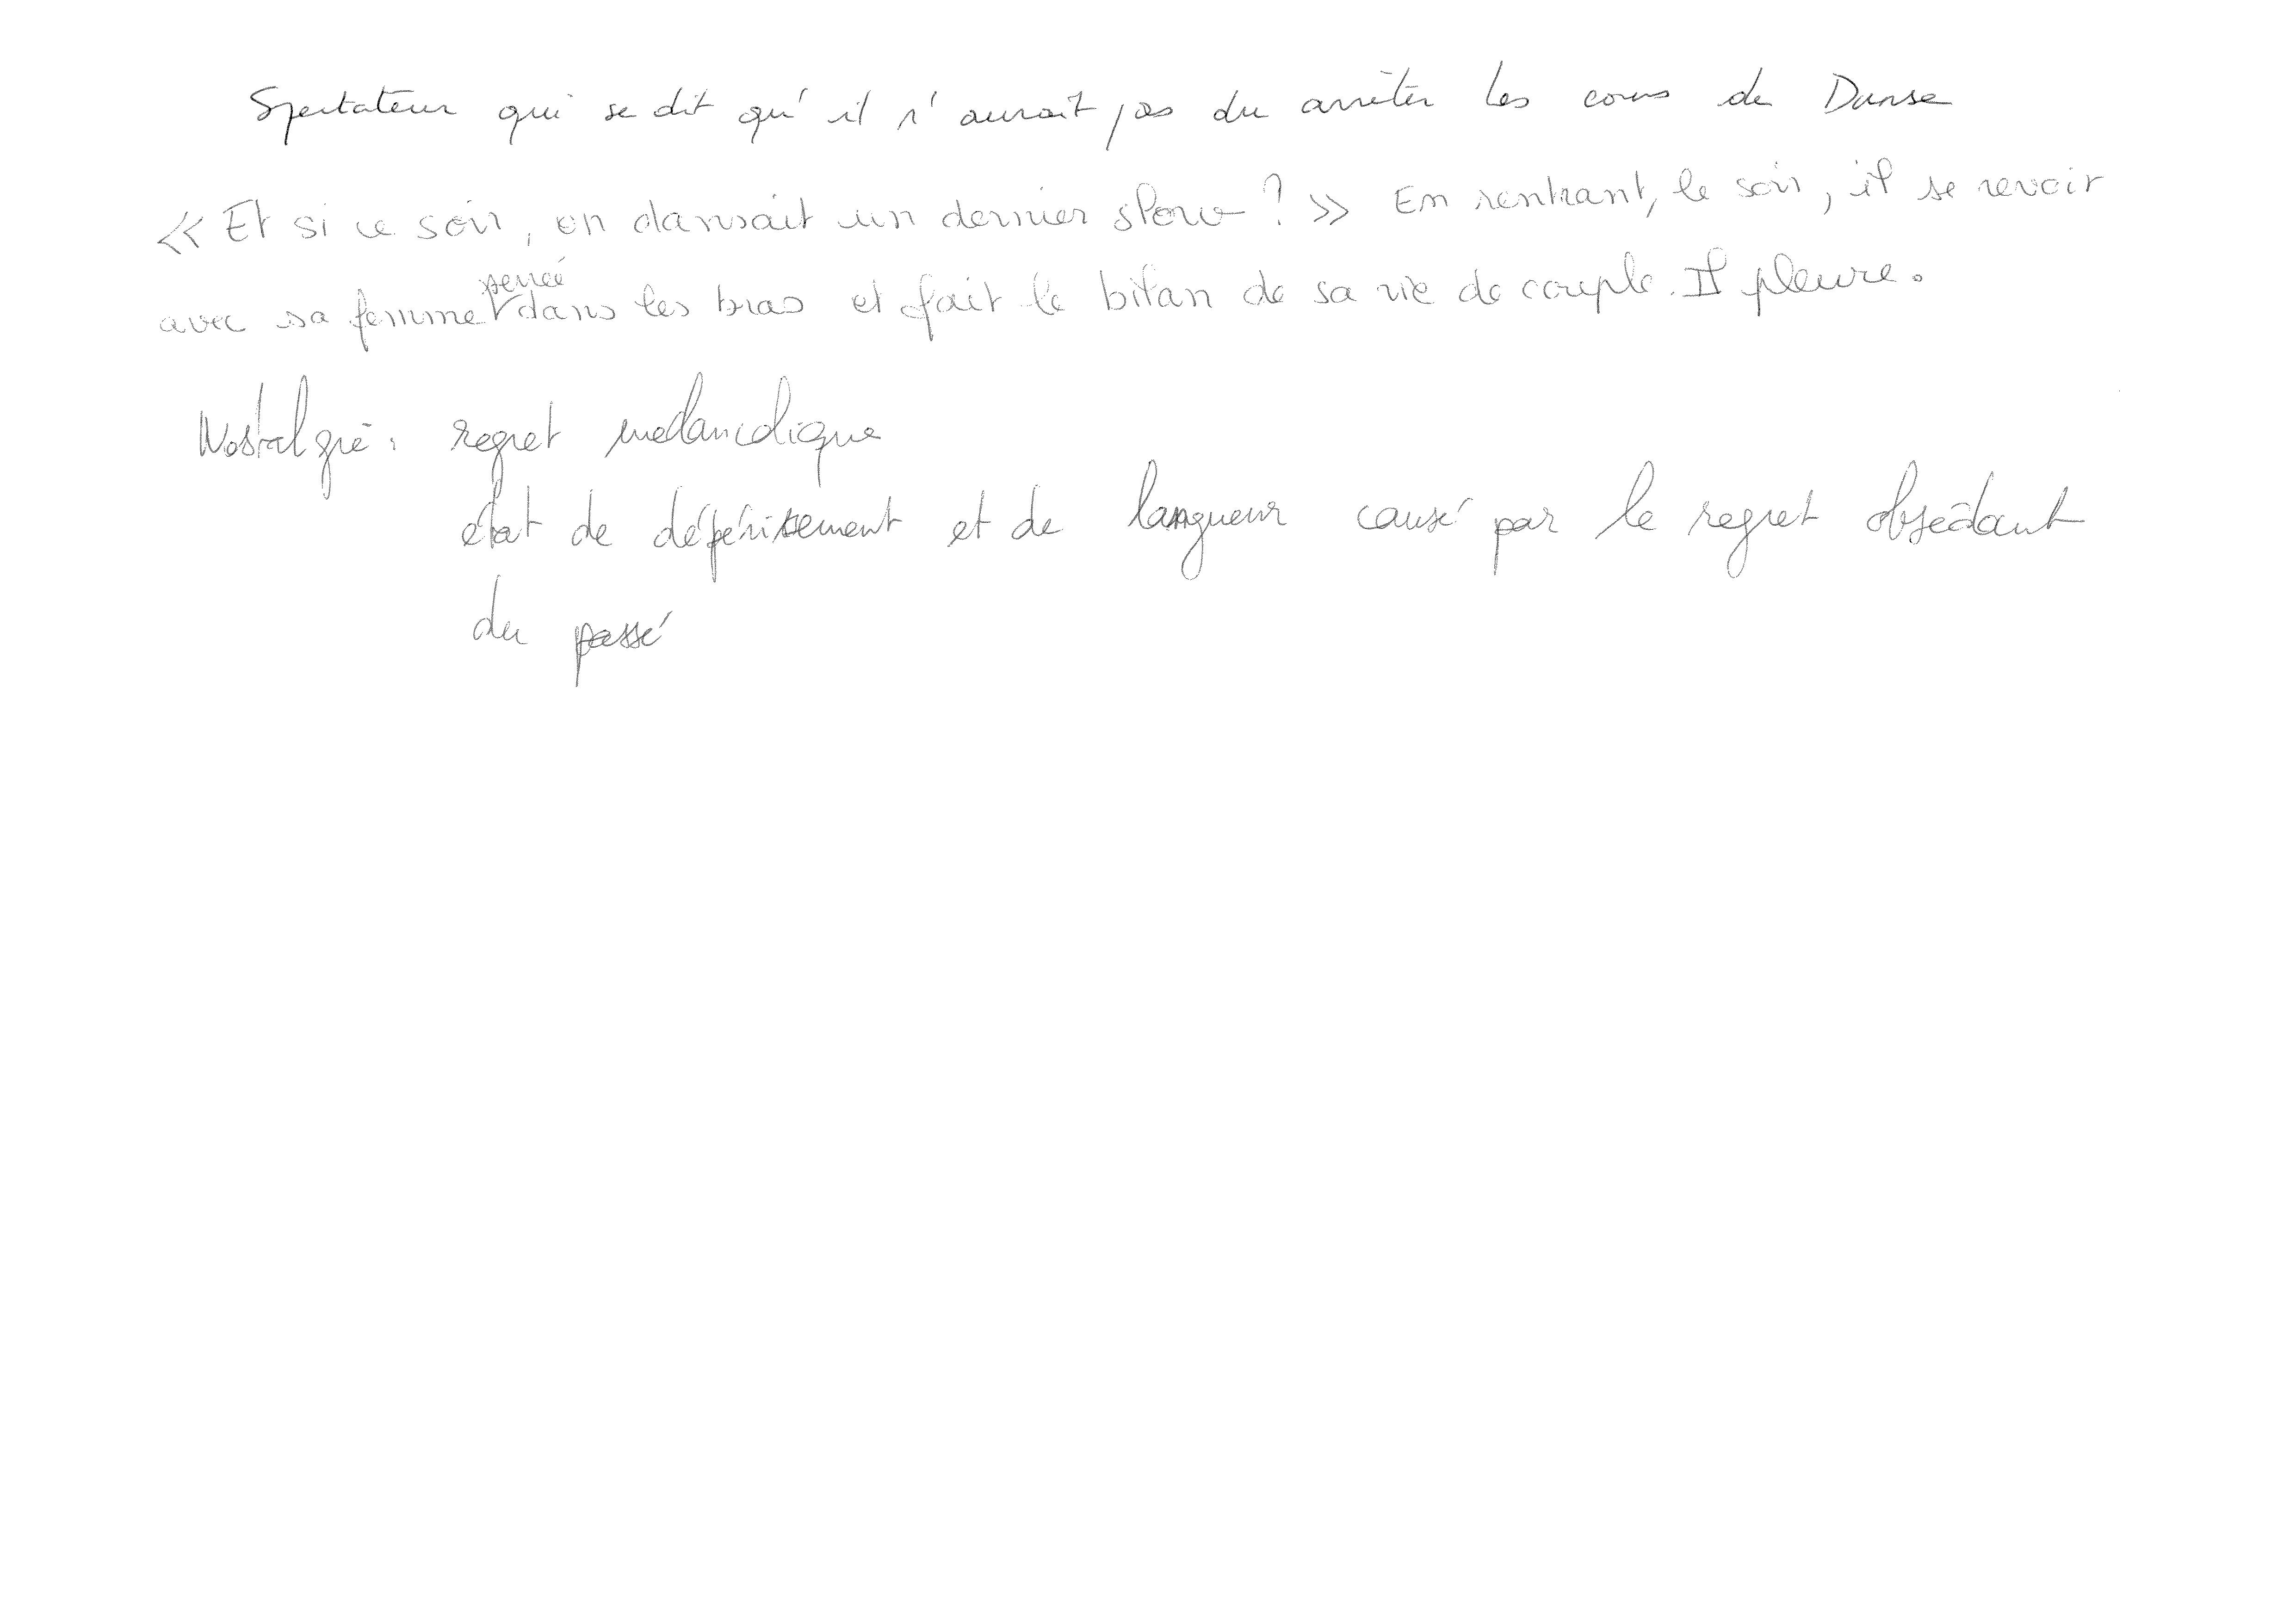 Spectateur qui se dit qu'il n'aurait pas du arrêter les cours de Danse
« Et si ce soir, on dansait un dernier slow ? » En rentrant, le soir, il se revoir
serrée
avec sa femme dans les bras et fait le bilan de sa vie de couple. Il pleure.
Nostalgie : regret mélancolique
état de dépérissement et de langueur causé par le regret obsédant
du passé